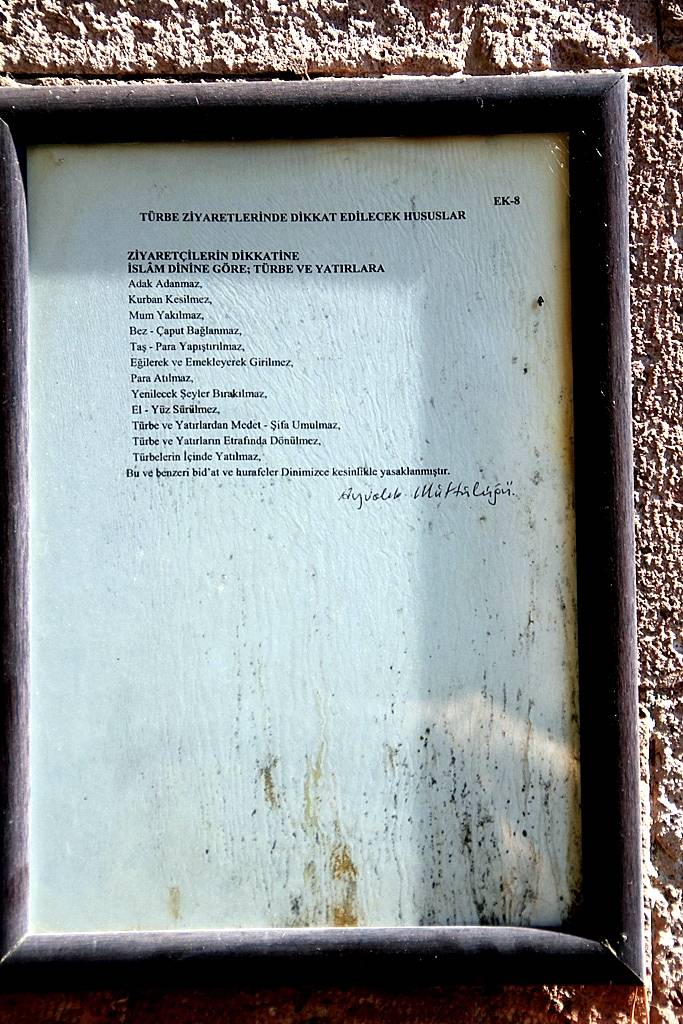 EK-8
TÜRBE ZİYARETLERİNDE DİKKAT EDİLECEK HUSUSLAR
ZİYARETÇİLERİN DİKKATİNE
İSLÂM DİNİNE GÖRE; TÜRBE VE YATIRLARA
Adak Adanmaz,
Kurban Kesilmez,
Mum Yakılmaz,
Bez - Çaput Bağlanmaz,
Taş - Para Yapıştırılmaz,
Eğilerek ve Emekleyerek Girilmez,
Para Atılmaz,
Yenilecek Şeyler Bırakılmaz,
El - Yüz Sürülmez,
Türbe ve Yatırlardan Medet - Şifa Umulmaz,
Türbe ve Yatırların Etrafında Dönülmez,
Türbelerin İçinde Yatılmaz,
Bu ve benzeri bid'at ve hurafeler Dinimizce kesinlikle yasaklanmıştır.
Ayvalık Müftülüğü.